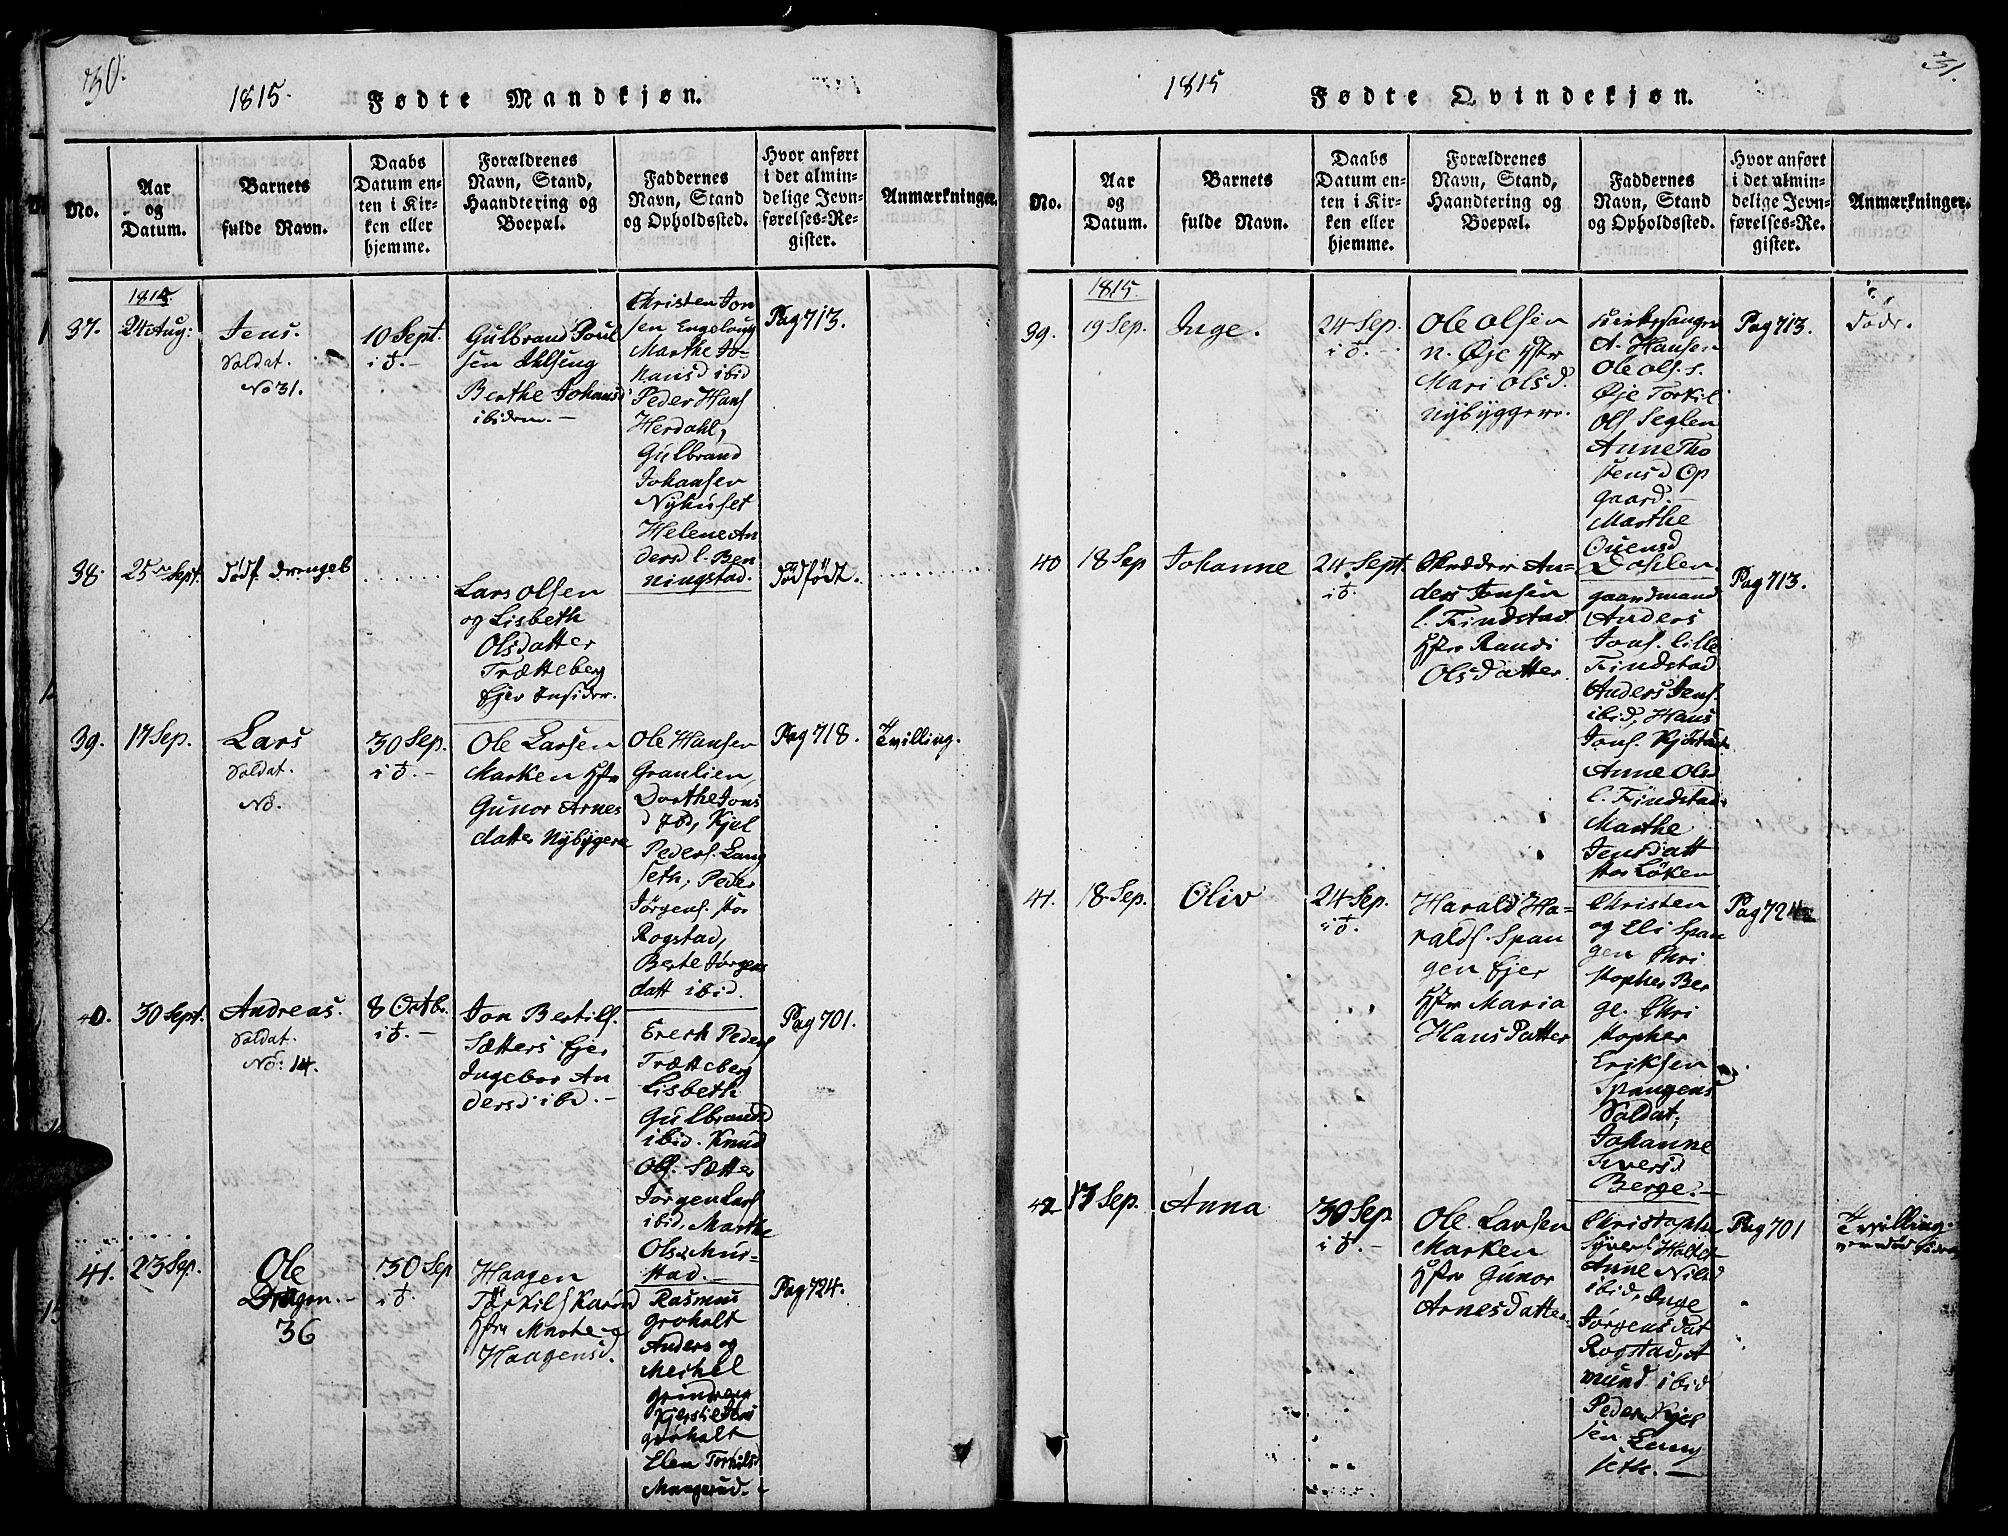 30.
1815. Fødte Mandkjøn.
No.
Aar og Datum.
Barnets fulde Navn.
Daabs Datum en-
ten i Kir-
ken eller
hjemme.
Forældrenes
Navn, Stand,
Haandtering og
Boepæl.
Faddernes
Navn, Stand
og Opholdssted.
Hvor anført
i det almin-
delige Jevn-
førelses-Re-
gister.
Anmærkninger.
1815.
37.
24 Aug:
Jens.
Soldat.
No 31.
10 Sept.
i K.
Gulbrand Poul
sen Ihlseng
Berthe Johansd
ibidem.
Christen Jon
sen Engelaug
Marthe Jo-
hansd ibid
Peder Hans
Herdahl,
Gulbrand
Johansen
Nyhuset
Helene An
dersd l. Ben
ningstad.
Pag 713.
38.
25 Sept.
Dødf. Drengeb
Lars Olsen
og Lisbeth
Olsdatter
Trætteberg
Ejer
dödfödt.
39.
17 Sep.
Lars
Soldat.
No.
30 Sep.
i K.
Ole Larsen
Marken Hstr
Gunor Arnes
datter Nybygere
Ole Hansen
Graulien,
Dorthe Jons
d ibd, Kjel
Peders. Lang
seth, Peder
Jörgens. stor
Rogstad,
Berte Jørgens
datt ibid.
Pag 718.
Tvilling.
40.
30 Sept.
Andreas.
Soldat.
No: 14.
8 Octbr.
i K.
Jon Bertils.
Sætters Ejer
Ingebor An
dersd ibd.
Erech Peders
Trætteberg
Lisbeth
Gulbrandsd
ibid. Knud
Ols. Sætter
Jörgen Lars
ibid, Marthe
Olsd Mur-
stad.
Pag 701.
41.
23 Sep.
Ole
Dragon.
36
30 Sep
i K.
Haagen
Torkils Karud
Hstr Marte
Haagensd.
Rasmus
Groholt
Anders og
Mechel
Grindvold
Kjersti Jens
groholt
Elen Torkilsd
Mangerud.
Pag 724.
31.
1815 Fødte Qvindekjøn.
No.
Aar
og
Datum.
Barnets
fulde Navn.
Daabs
Datum en-
ten i Kir-
ken eller
hjemme.
Forældrenes
Navn, Stand,
Haandtering og
Boepæl.
Faddernes
Navn, Stand
og Opholdssted.
Hvor anført
i det almin-
delige Jevn-
førelses-Re-
gister.
Anmærkninger.
1815.
39.
19 Sep.
Inge.
24 Sep.
i K.
Ole Olsen
n. Øje Hstr
Mari Olsd.
Nybyggere.
Kirkesanger
A. Hansen
Ole Ols. s.
Øje Torkil
Ols Seglen
Anne Tho
stensd Op
gaard.
Marthe
Ouensd
Dahlen.
Pag 713.
Död.
40
18 Sep
Johanne
24 Sept.
i K.
Skredder An-
ders Jonsen
l. Findstad
Hstr Randi
Olsdatter.
gaardmand
Anders
Jons. lille
Findstad
Anders Jens.
ibid, Hans
Jons. Kjöstad
Anne Olsd
l. Findstad
Marthe
Jensdatt
stor Löken
Pag 713.
41.
18 Sep.
Oliv
24 Sep.
i K.
Harald Ha-
ralds. Span
gen Ejer
Hstr Maria
Hansdatter
Christen
og Eli Span
gen Chri
stopher Ber
ge. Chri
stopher
Eriksen
Spangens
Soldat,
Johanne
Iversd
Berge.
Pag 724
42
17 Sep.
Anna
30 Sep
i K.
Ole Larsen
Marken
Hstr Gunor
Arnesdatter
Christopher
Syvers Holter
Anne Nilsd
ibid, Inge
Jörgensdat
Rogstad, A
mund ibid
Peder Kjel
sen Lang
seth.
Pag 701
Tvilling